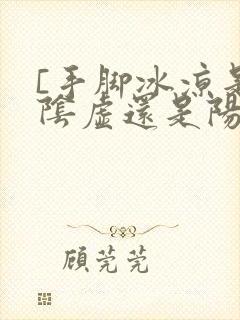 [手脚冰凉是
陰虛還是陽
顧莞莞